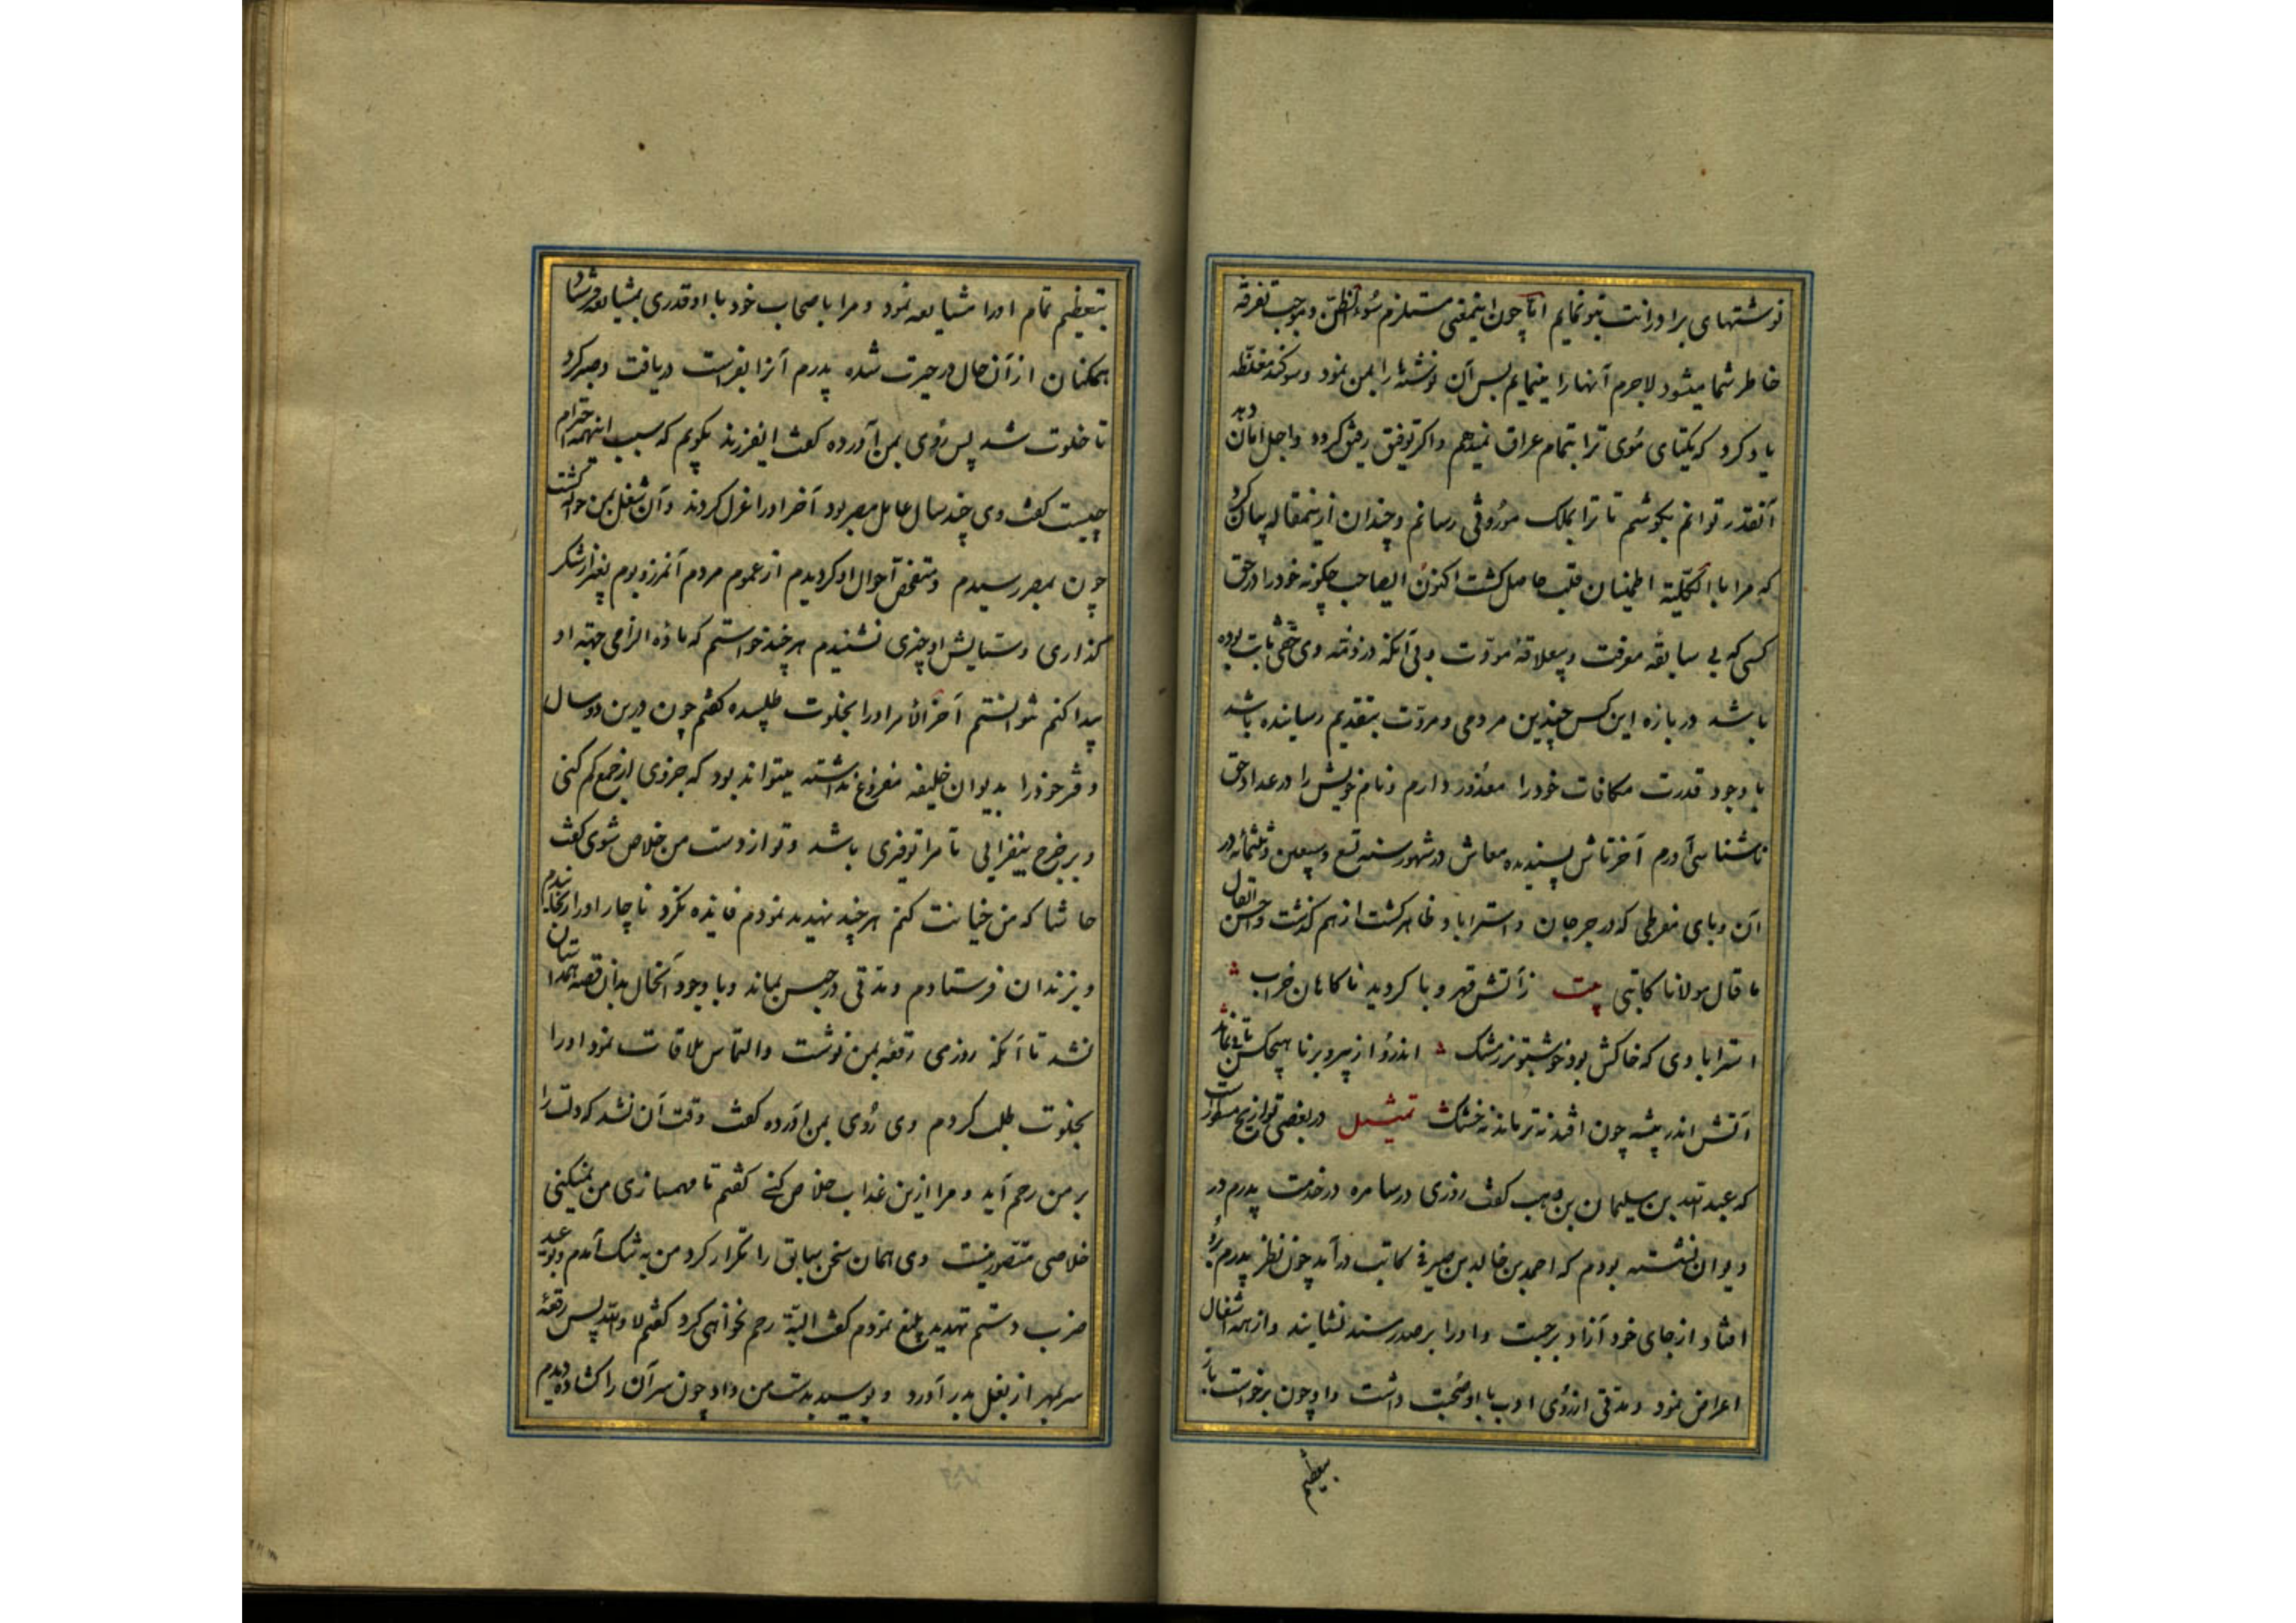 نوشتهای برادرانت بتو نمایم اما چون اینمعنی مستلزم سُوء الظن و موجب تفرقه
خاطر شما میشود لاجرم آنها را مینمایم پس آن نوشته‌ها را بمن نمود و سوکند مغلظه
یاد کرد که یکتای مُوی ترا بتمام عراق نمیدهم و اکر توفیق رفیق کردد و اجل امان دهد
آنقدر توانم بکوشم تا ترا بملک مَورُوثی رسانم و چندان ازینمقاله بیان کرد
که مرا بالکلّیّة اطمینان قلب حاصل کشت اکنون ایصاحب چکونه خود را در حق
کسی که بی سابقه معرفت و بیعلاقهٔ مودّت و بی آنکه در ذمّه وی حقّی ثابت بوده
باشد در بازه این کس چندین مردمی و مروّت بتقدیم رسانیده باشد
با وجود قدرت مکافات خود را معذور دارم و نام خویش را در عداد حق
ناشناسی آورم آخر تاش پسندیده معاش در شهور سنه تسع و سبعین و ثلثمائه در
آن وبای مفرطی که در جرجان و استراباد ظاهر کشت از هم کذشت و احسن
ما قال مولانا کاتبی بیت ز آتش قهر وبا کردید ناکاهان خراب
استرابادی که خاکش بود خوشبوتر ز مشک اندرو از پیر و برنا هیچکس باقی نماند
آتش اندر بیشه چون افتد نه تر ماند نه خشک تمثیل در بعضی تواریخ مسطورست
که عبد الله بن سلیمان بن وهب کفت روزی در سامره در خدمت پدرم در
دیوان نشسته بودم که احمد بن خالد بن صیرفی کاتب درآمد چون نظر پدرم برو
افتاد از جای خود آزاد برجست و او را بر صدر مسند نشانید و از همه اشغال
اعراض نمود و مدتی از رُوی ادب با او صُحبت داشت و او چون برخواست باز
بتعظیم
بتعظیم تمام او را مشایعه نمود و مرا با صحاب خود با او قدری بمشایعه فرستاد
همکنان از آن حال در حیرت شده پدرم آنرا بفراست دریافت و صبر کرد
تا خلوت شد پس رُوی بمن آورده کفت ایفرزند بکویم که سبب اینهمه احترام
چیست کفت وی چند سال عامل مصر بود آخر او را عزل کردند و آن شغل بمن حواله کشت
چون بمصر رسیدم و متفحّص احوال او کردیدم از عموم مردم آنمرز و بوم بغیر از شکر
کذاری و ستایش او چیزی نشنیدم هر چند خواستم که ماده الزامی جهة او
پیدا کنم نتوانستم آخر الامر او را بخلوت طلبیده کفتم چون درین دو سال
دفتر خود را بدیوان خلیفه مفروغ نداشته میتواند بود که جزوی از جمع کم کنی
و بر خرج بیفزایی تا مرا توفیری باشد و تو از دست من خلاص شوی کفت
حاشا که من خیانت کنم هر چند تهدید نمودم فایده نکرد ناچار او را رنجانیدم
و بزندان فرستادم و مدتی در حبس بماند و با وجود آنحال بدان قصه همداستان
نشد تا آنکه روزی رقعه بمن نوشت و التماس ملاقات نمود او را
بخلوت طلب کردم وی رُوی بمن آورده کفت وقت آن نشد که دلت را
بر من رحم آید و مرا ازین عذاب خلاص کنی کفتم تا مهمسازی من نمیکنی
خلاصی متصوّر نیست وی همان سخن سابق را تکرار کرد من به تنک آمدم و بوعید
ضرب و شتم تهدید بلیغ نمودم کفت البتّة رحم نخواهی کرد کفتم لا والله پس رقعهٔ
سر بمهر از بغل بدر آورد و بوسید بدست من داد چون سر آن را کشادم دیدم